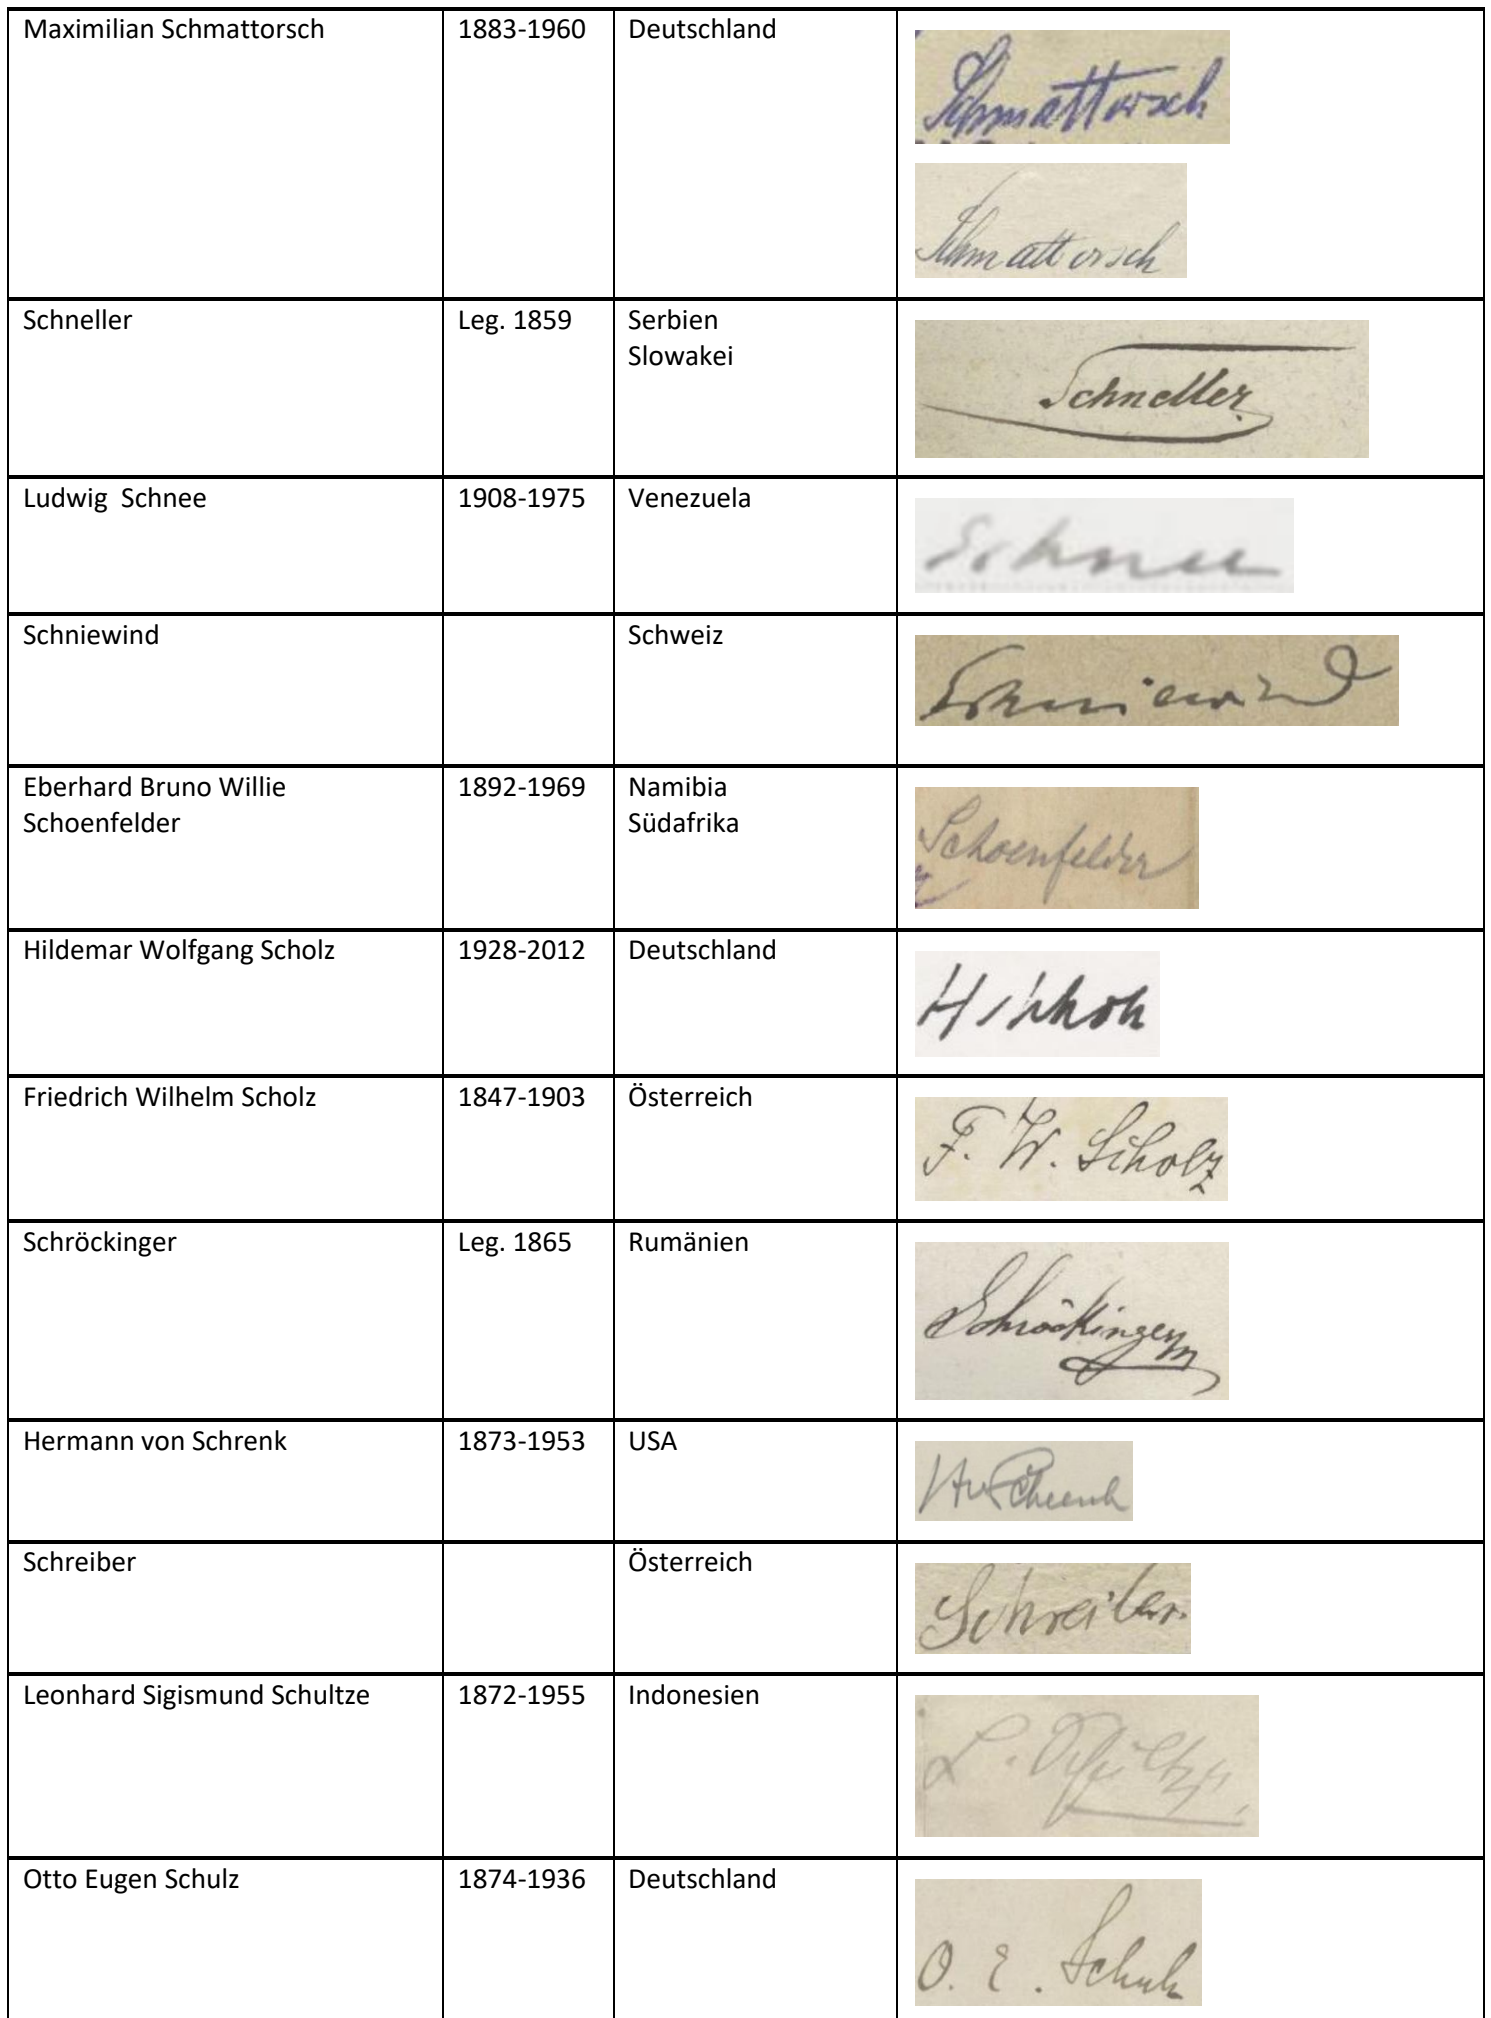 Maximilian Schmattorsch 1883-1960 Deutschland
Schmattorsch
Schmattorsch
Schneller Leg. 1859 Serbien
Slowakei
Schneller
Ludwig  Schnee 1908-1975 Venezuela
Schnee
Schniewind Schweiz
Schniewind
Eberhard Bruno Willie 1892-1969 Namibia
Schoenfelder Südafrika
Schoenfelder
Hildemar Wolfgang Scholz 1928-2012 Deutschland
H Scholz
Friedrich Wilhelm Scholz 1847-1903 Österreich
F. W. Scholz
Schröckinger Leg. 1865 Rumänien
Schröckinger
Hermann von Schrenk 1873-1953 USA
HvSchrenk
Schreiber Österreich
Schreiber.
Leonhard Sigismund Schultze 1872-1955 Indonesien
L. Schultze
Otto Eugen Schulz 1874-1936 Deutschland
O. E. Schulz